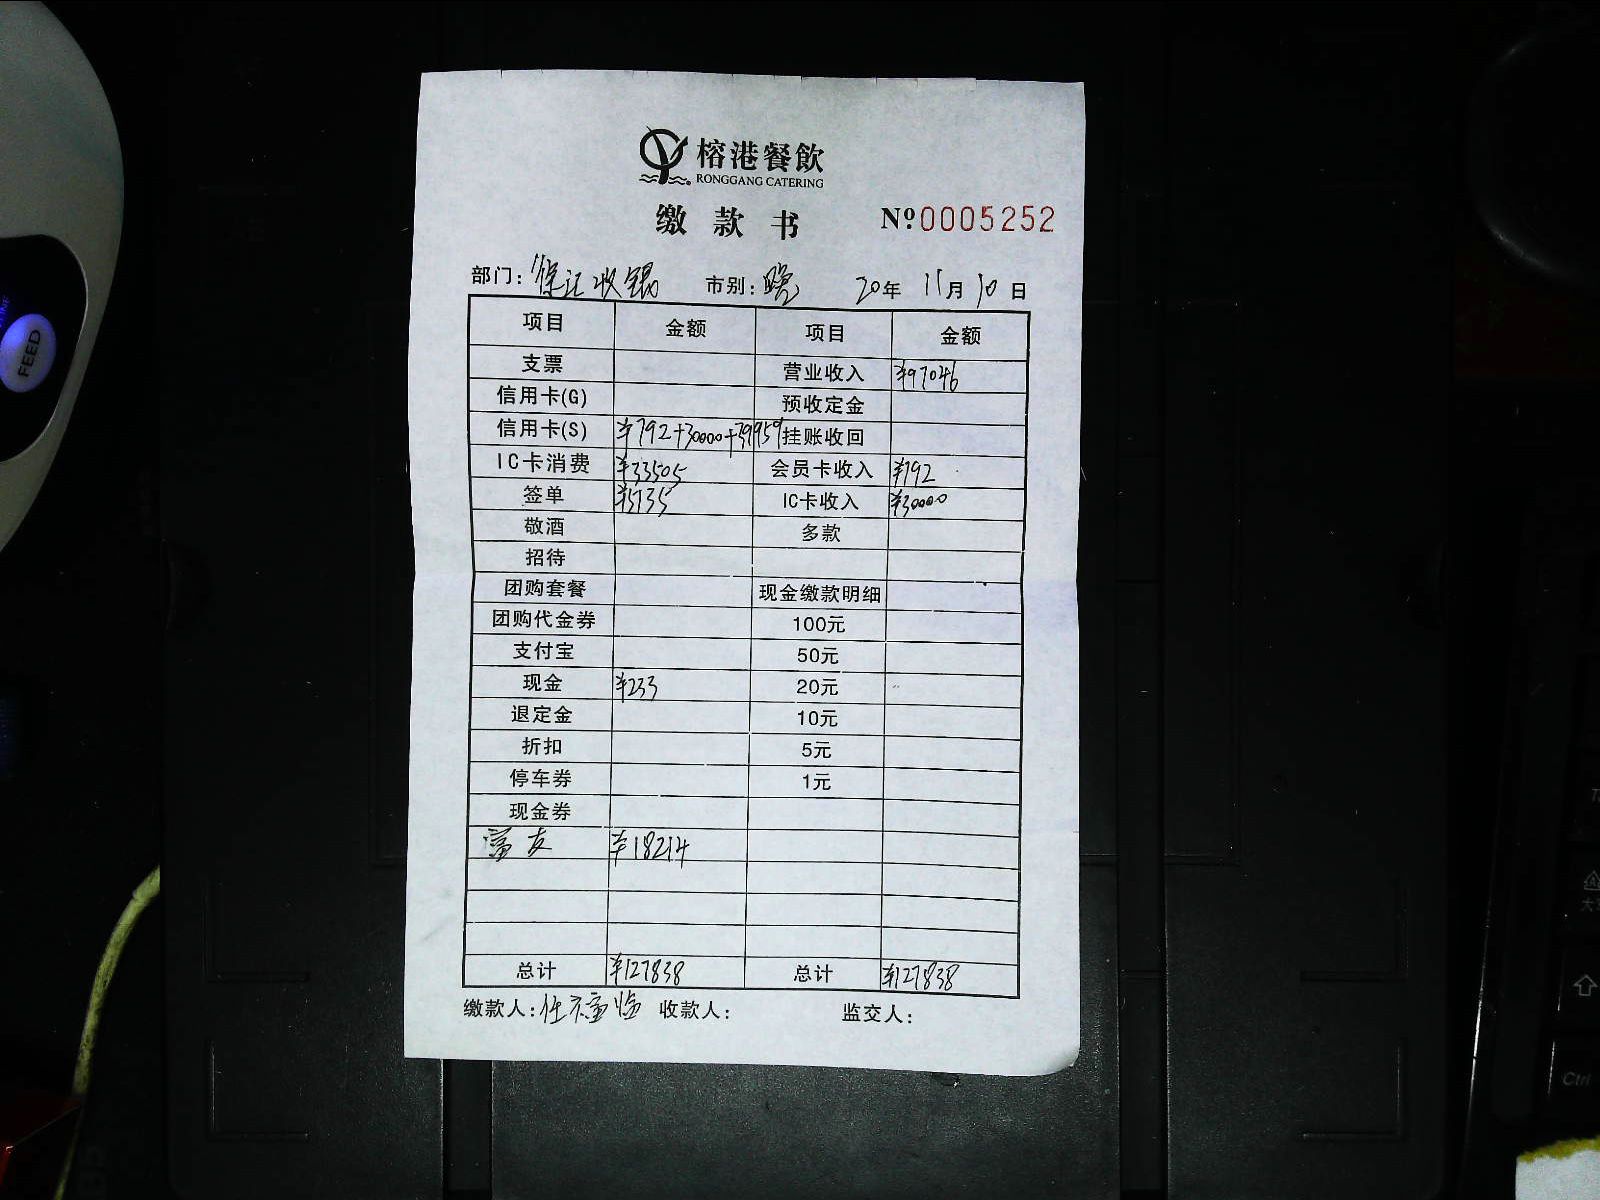 榕港餐飲
RONGGANG CATERING
缴款书 Nº 0005252
部门: 收银 市别: 晚 20年 11月 10日
项目 金额 项目 金额
支票 营业收入 ¥97046
信用卡(G) 预收定金
信用卡(S) ¥792+30000+39959 挂账收回
IC卡消费 ¥33505 会员卡收入 ¥792
签单 ¥5135 IC卡收入 ¥30000
敬酒 多款
招待
团购套餐 现金缴款明细
团购代金券 100元
支付宝 50元
现金 ¥233 20元
退定金 10元
折扣 5元
停车券 1元
现金券
富友 ¥18214
总计 ¥127838 总计 ¥127838
缴款人: 收款人: 监交人:
FEED
Ctrl